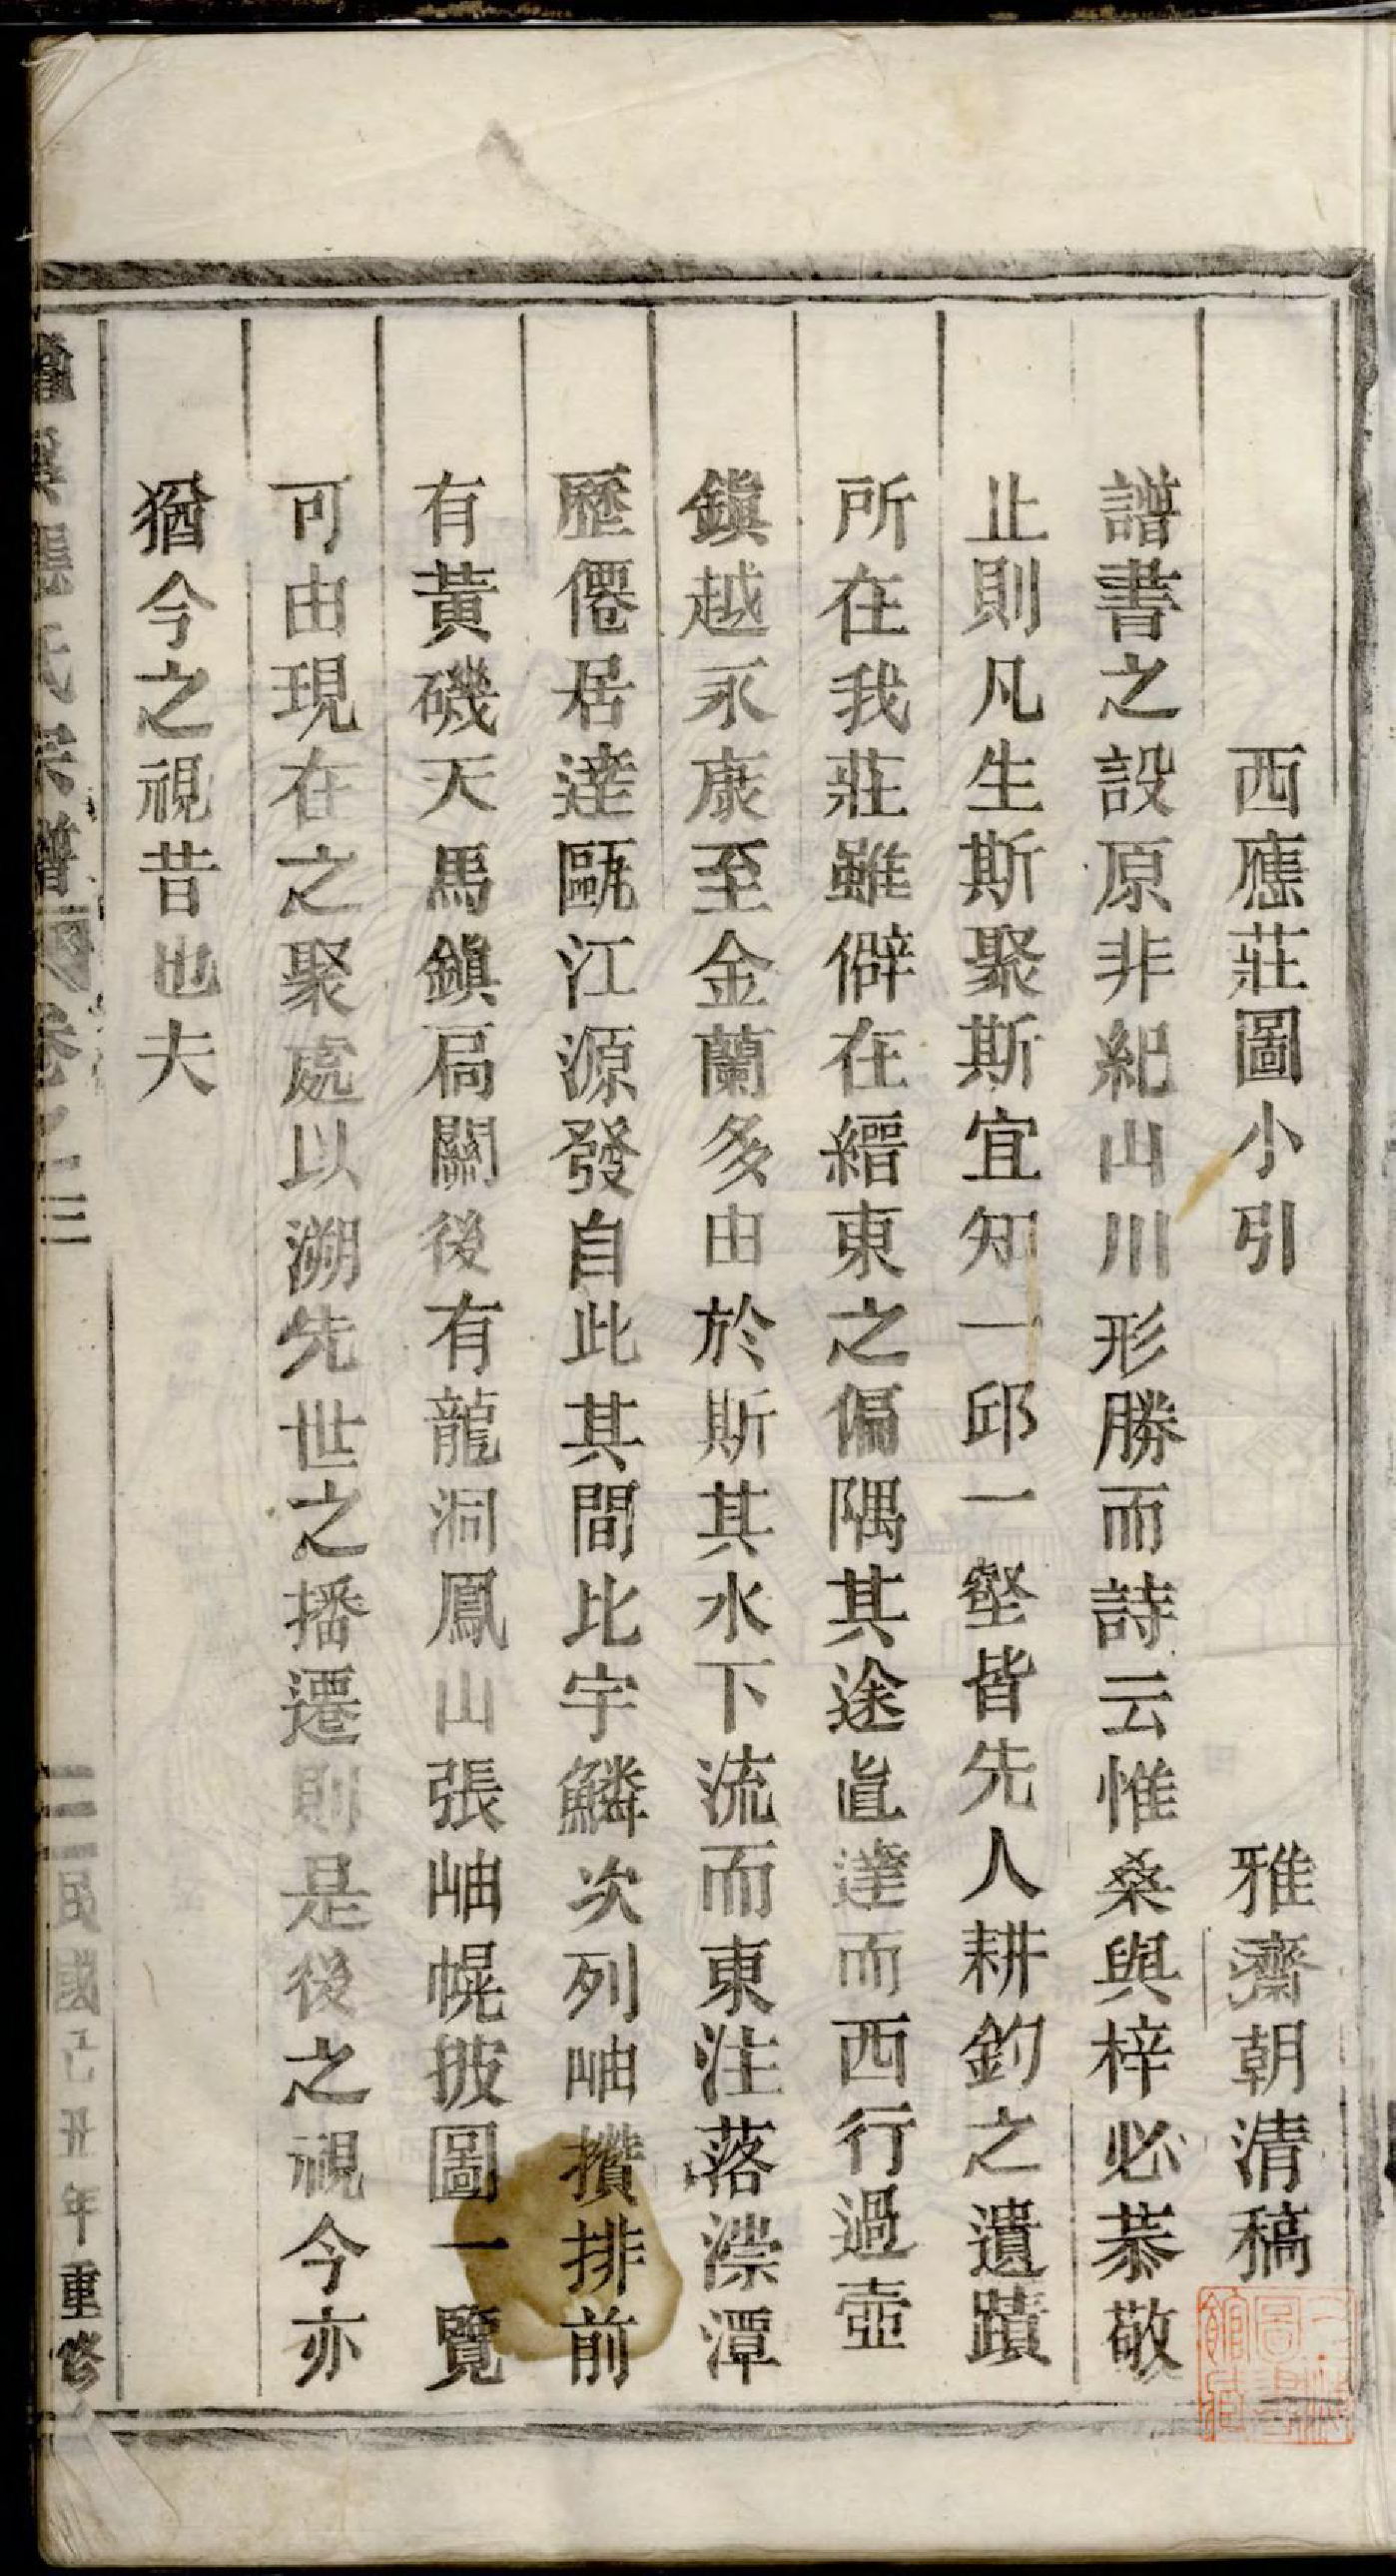 西應莊圖小引 雅齋朝清稿
譜書之設原非紀山川形勝而詩云惟桑與梓必恭敬
止則凡生斯聚斯宜知一邱一壑皆先人耕釣之遺蹟
所在我莊雖僻在縉東之偏隅其途直達而西行過壺
鎭越永康至金蘭多由於斯其水下流而東注落漈潭
歷僊居達甌江源發自此其間比宇鱗次列岫攢排前
有黃磯天馬鎭局關後有龍洞鳳山張岫幌披圖一覽
可由現在之聚處以溯先世之播遷則是後之視今亦
猶今之視昔也夫
氏宗譜 卷之三 民國己丑年重修